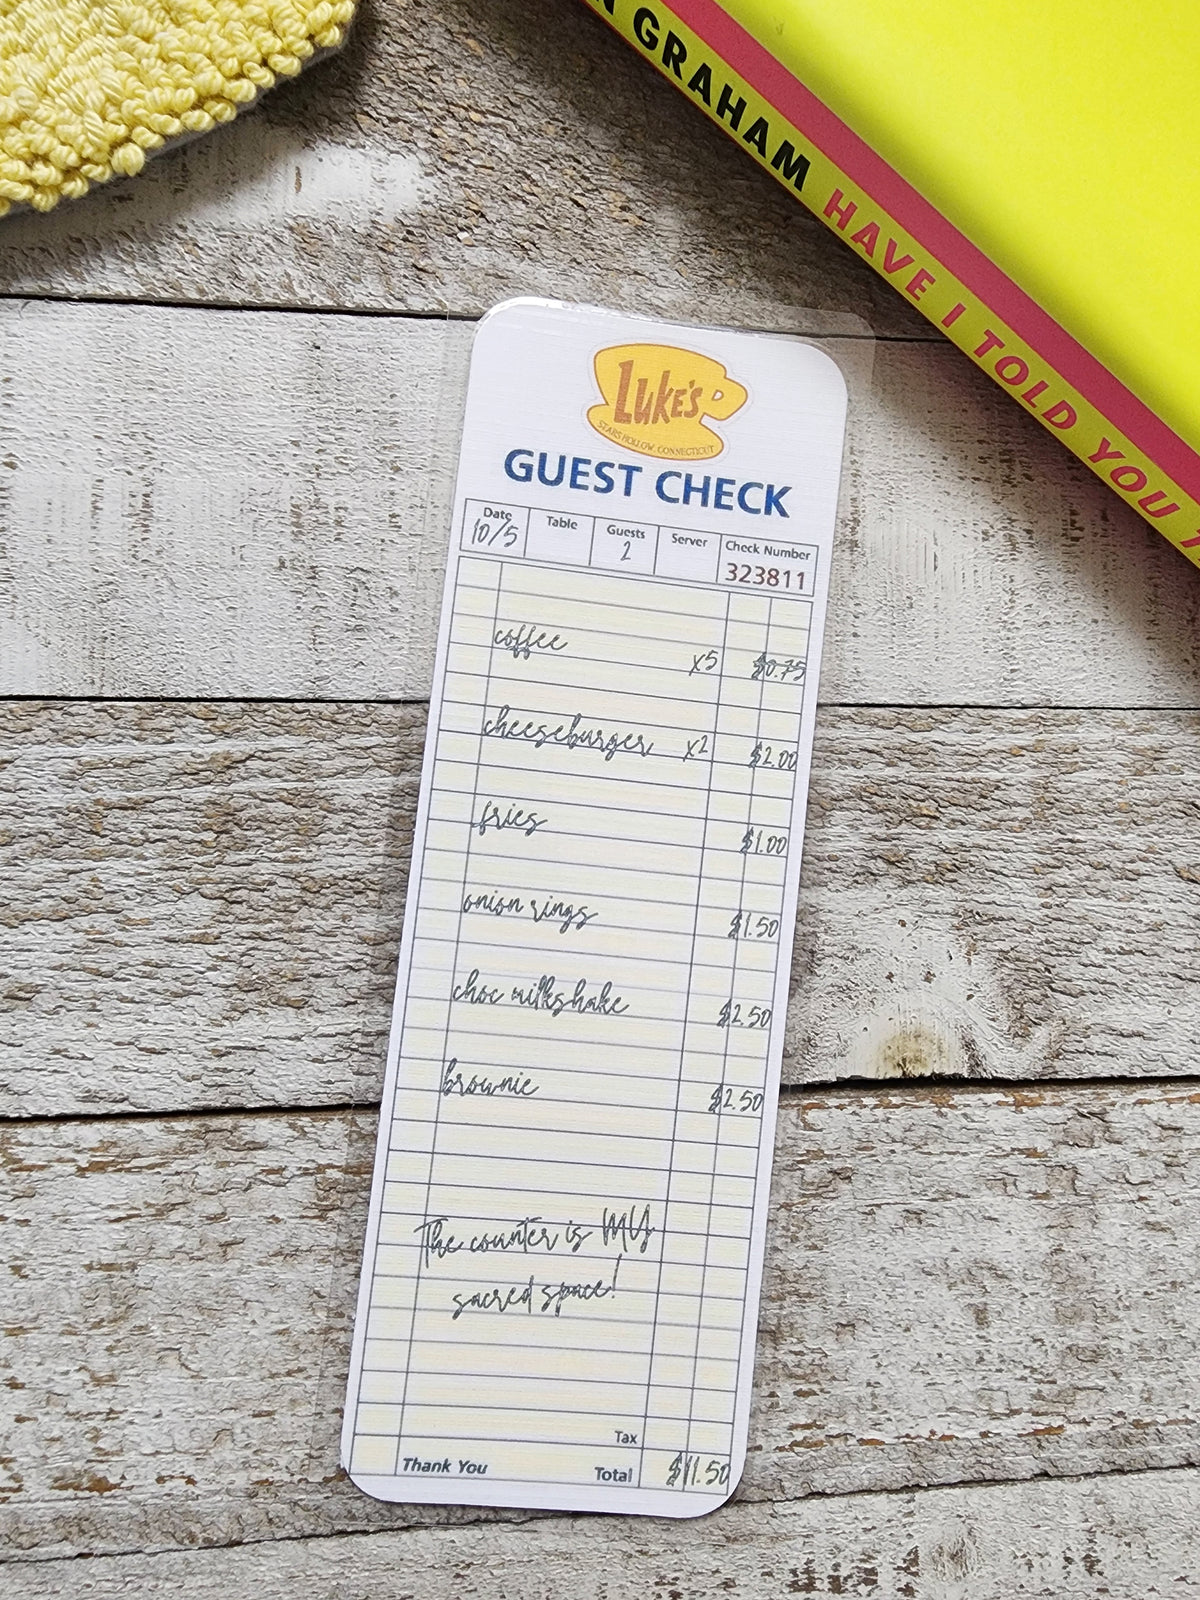 N GRAHAM HAVE I TOLD YOU
LUKE'S
STARS HOLLOW, CONNECTICUT
GUEST CHECK
Date Table Guests Server Check Number
10/5 2 323811
coffee x5 $0.75
cheeseburger x2 $2.00
fries $1.00
onion rings $1.50
choc milkshake $2.50
brownie $2.50
The counter is MY
sacred space!
Tax
Thank You Total $11.50